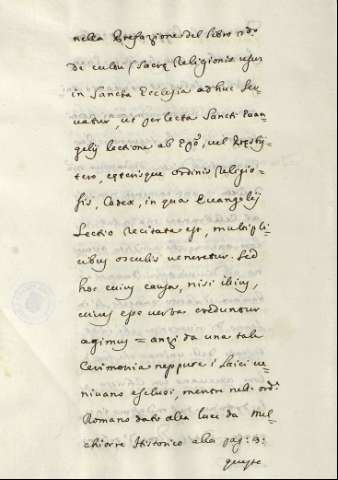 nella Prefazione del libro 2do
De cultu Sacræ Religionis usus
in Sancta Ecclesia adhuc ser=
vatur, ut perlecta Sancti Evan=
gelij lectione ab Epo, vel Presby=
tero, ceterisque ordinis Religio=
sis, Codex, in quo Evangelij
Lectio recitata est, multipli=
cibus osculis veneretur. Sed
hoc cuius causa, nisi illius,
cuius esse verba creduntur
agimus = anzi da una tale
Cerimonia neppure i Laici ve=
nivano esclusi, mentre nell' ordi
Romano dato alla luce da Mel=
chiorre Historico alla pag: 3:
queste